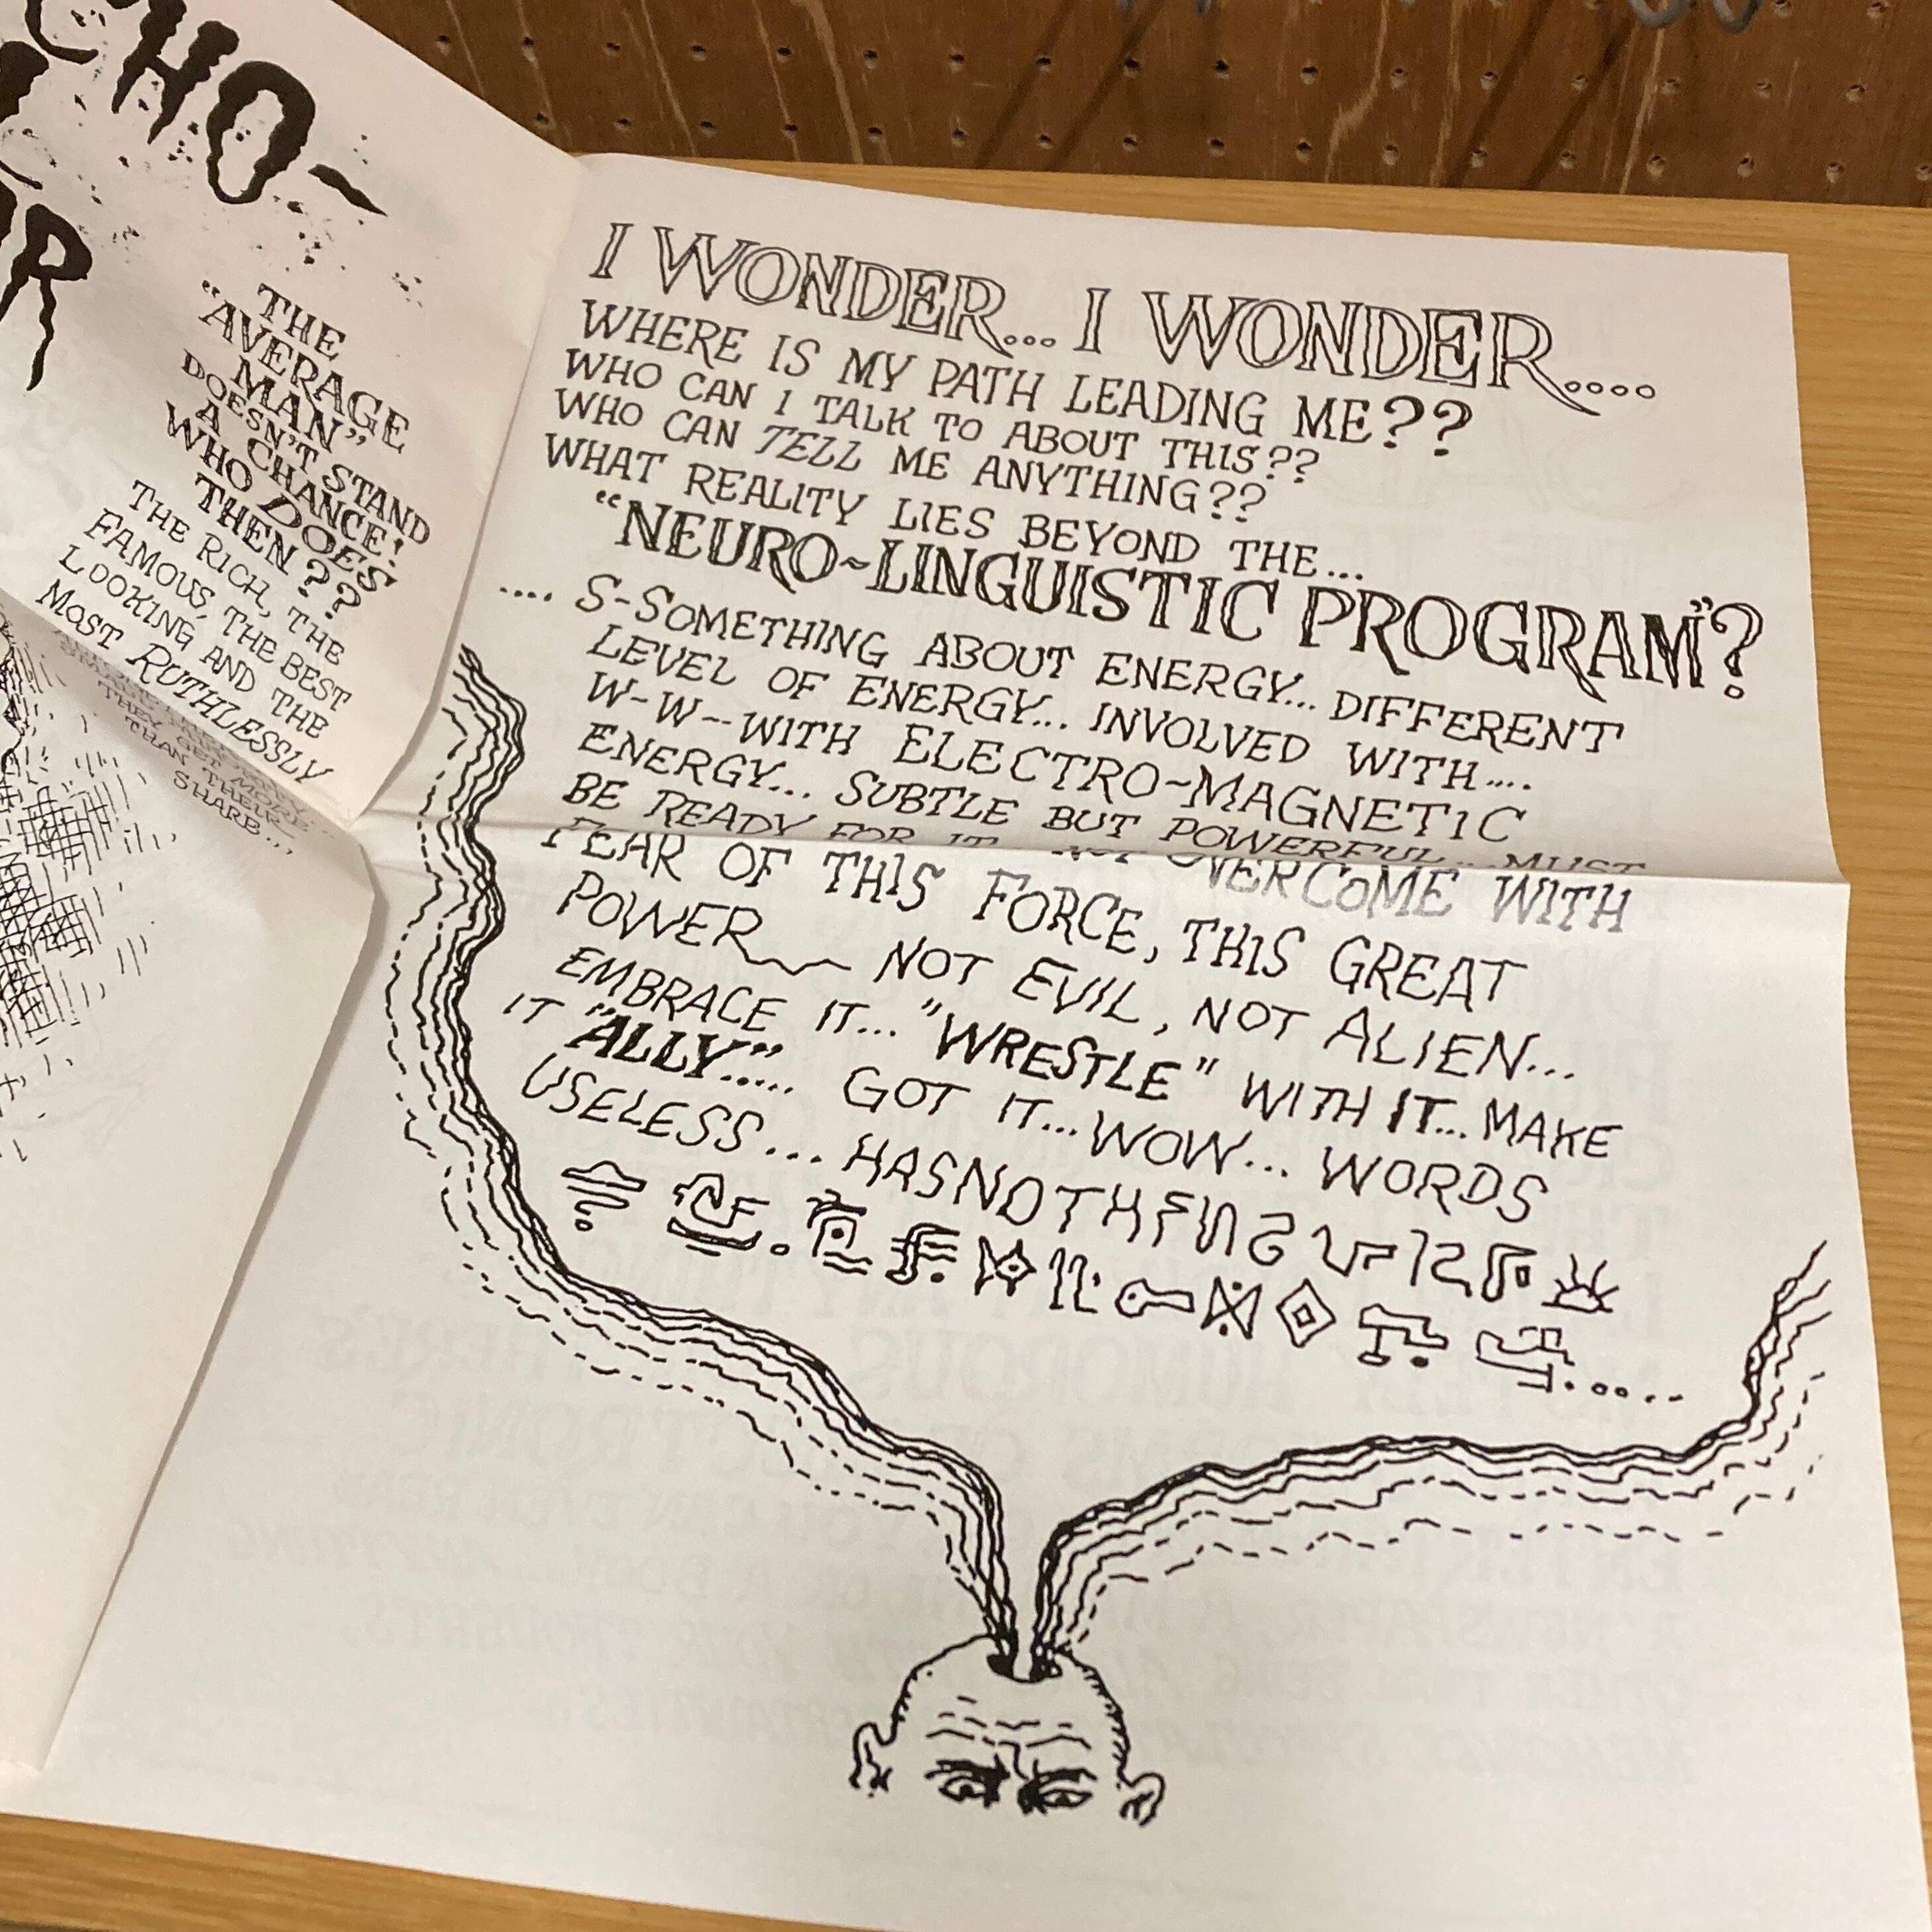 CHO-
R
THE
"AVERAGE
MAN"
DOESN'T STAND
A CHANCE!
WHO DOES
THEN??
THE RICH, THE
FAMOUS, THE BEST
LOOKING AND THE
MOST RUTHLESSLY
THEY GET MORE
THAN THEIR
SHARE...
I WONDER... I WONDER....
WHERE IS MY PATH LEADING ME??
WHO CAN I TALK TO ABOUT THIS??
WHO CAN TELL ME ANYTHING??
WHAT REALITY LIES BEYOND THE...
"NEURO-LINGUISTIC PROGRAM"?
.... S-SOMETHING ABOUT ENERGY... DIFFERENT
LEVEL OF ENERGY... INVOLVED WITH....
W-W--WITH ELECTRO-MAGNETIC
ENERGY... SUBTLE BUT POWERFUL... MUST
BE READY FOR IT OVERCOME WITH
FEAR OF THIS FORCE, THIS GREAT
POWER NOT EVIL, NOT ALIEN...
EMBRACE IT... "WRESTLE" WITH IT... MAKE
IT "ALLY"..... GOT IT... WOW... WORDS
USELESS... HASNOTH